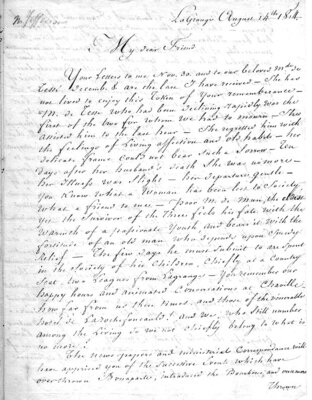 LaGrange August 14th 1814
My dear Friend
Your Letters to me Nov. 30. and to our beloved Mde de
Tessé Decemb. 8 are the last I have received — She has
not lived to enjoy this Token of Your remembrance —
M. de Tessé who had been declining rapidly was the
first of the two for whom We had to mourn — She
assisted him to the last hour — She regretted him with
the feelings of Living affection and old habits — her
delicate frame could not bear such a Sorrow —
days after her husband's death She was no more —
her Illness was slight — her departure gentle —
You Know What a Woman has been lost to Society
What a friend to me — poor M. de Mun, the
the Survivor of the Three feels his fate with the
Warmth of a passionate Youth and bears it with the
fortitude of an old man who depends upon speedy
relief — The few days he must submit to are spent
in the Society of his Children Chiefly at a Country
Seat two Leagues from Lagrange — You remember our
happy hours and animated Conversations at Chaville
how far from us those times, and those of the venerable
hotel de Larochefoucauld! and we, who still number
among the Living do we not chiefly belong to what is
no more!
The news papers and ministerial Correspondence will
have apprised you of the Successive Events which have
over thrown Bonaparte, introduced the Bourbons, and